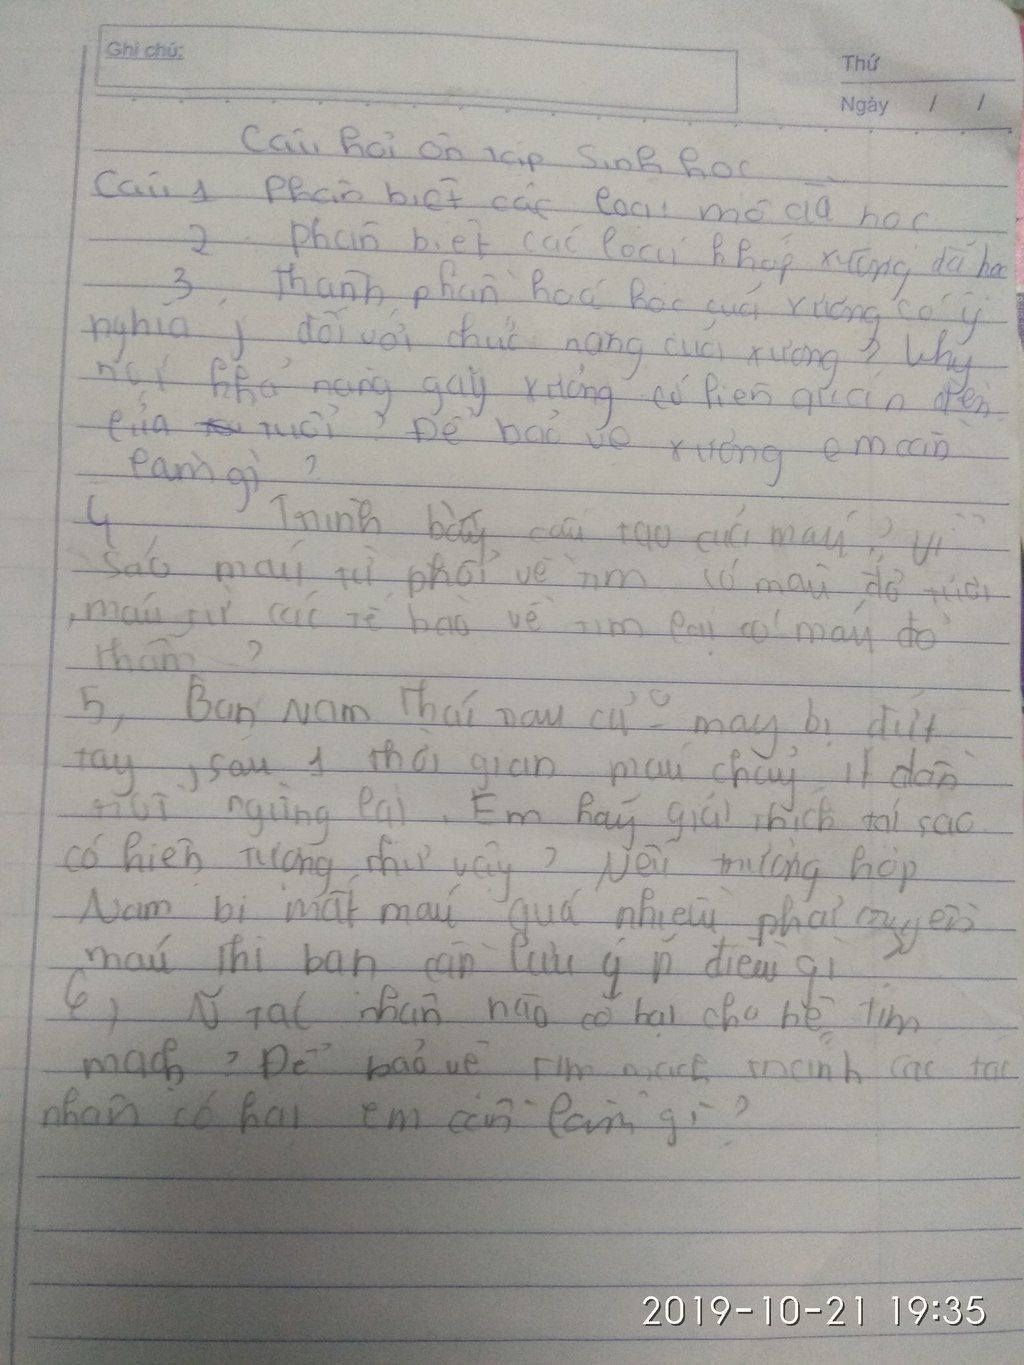 Ghi chú:
Thứ
Ngày / /
Câu hỏi ôn tập Sinh học
Câu 1 Phân biệt các loại mô đã học
2 Phân biệt các loại khớp xương đã học
3, Thành phần hoá học của xương có ý
nghĩa j đối với chức năng của xương? Why
nói khả năng gãy xương có liên quan đến
lứa tuổi? Để bảo vệ xương em cần
làm gì?
4 Trình bày cấu tạo của máu? Vì
sao máu từ phổi về tim có màu đỏ tươi
, máu từ các tế bào về tim lại có máu đỏ
thẫm?
5, Bạn Nam thái rau củ may bị đứt
tay, sau 1 thời gian máu chảy ít dần
rồi ngừng lại. Em hãy giải thích tại sao
có hiện tượng như vậy? Nếu trường hợp
Nam bị mất máu quá nhiều phải truyền
máu thì bạn cần lưu ý n điều gì?
6, N tác nhân nào có hại cho hệ tim
mạch? Để bảo vệ tim mạch tránh các tác
nhân có hại em cần làm gì?
2019-10-21 19:35